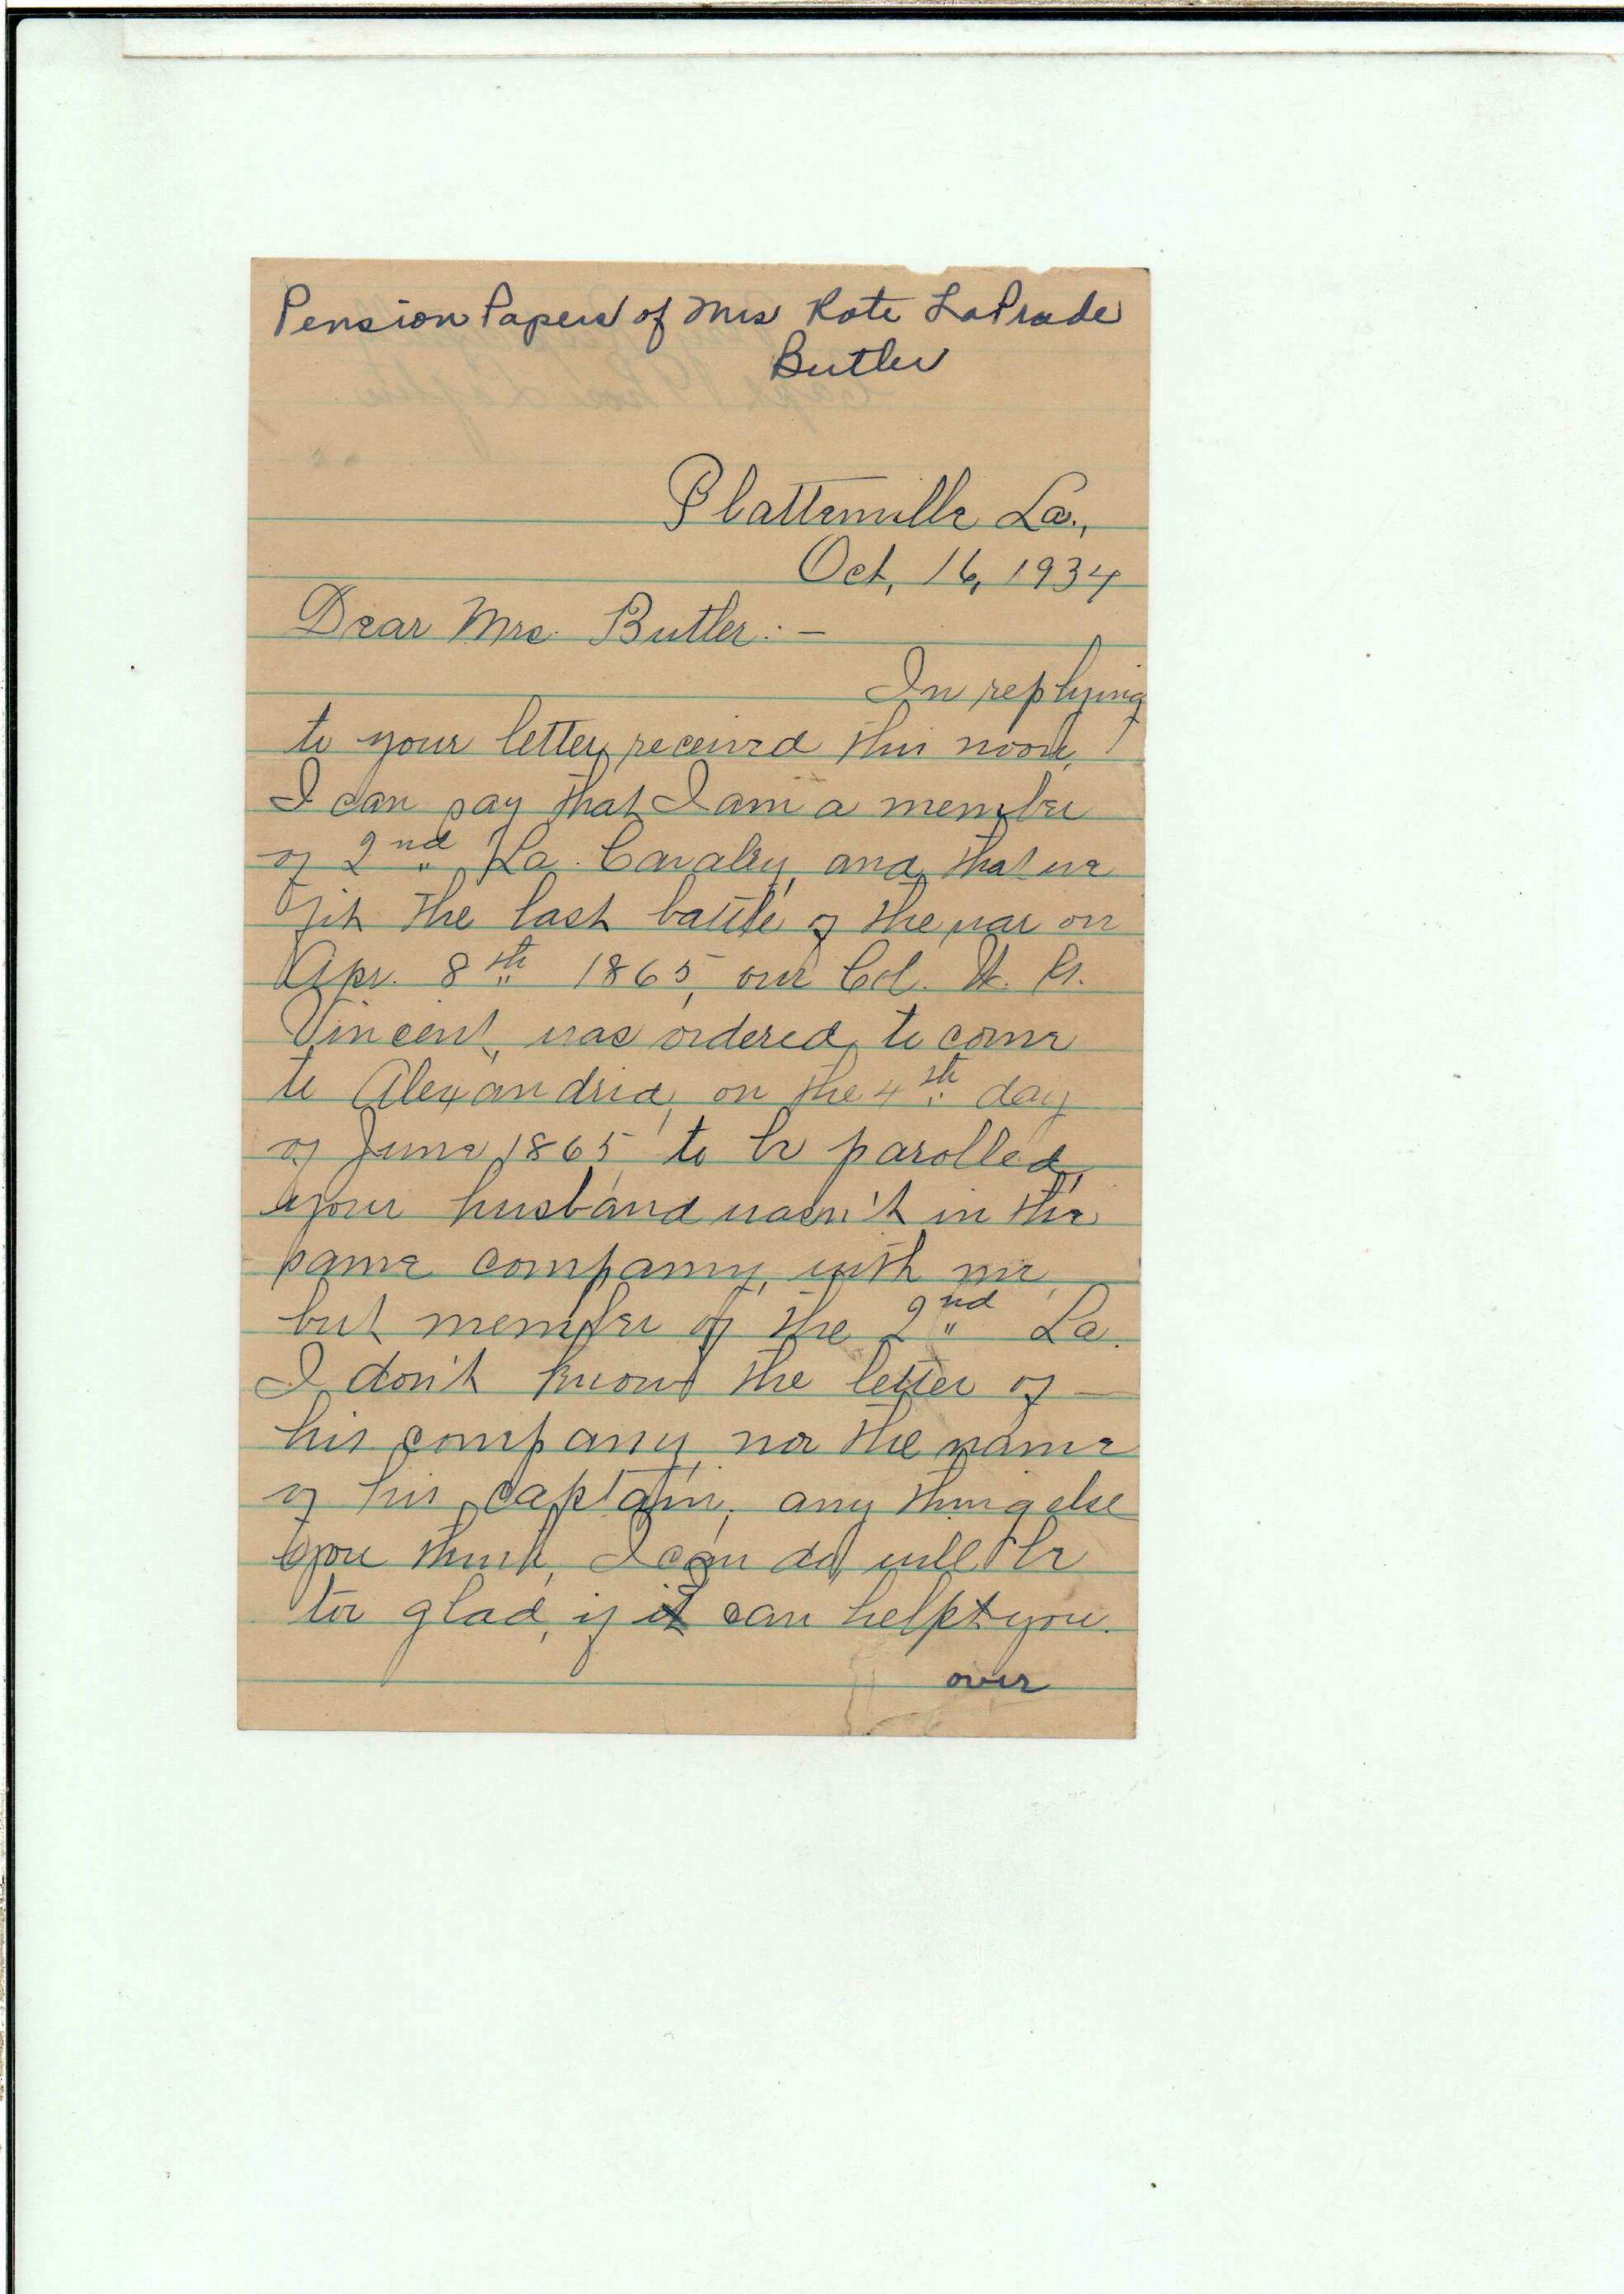 Pension Papers of Mrs Kate LaPrade
Butler
Plattenville La.,
Oct, 16, 1934
Dear Mrs. Butler: —
In replying
to your letter, received this noon,
I can say that I am a member
of 2nd La. Cavalry, and that we
fit the last battle of the war on
Apr. 8th 1865, our Col. W. G.
Vincent, was ordered, to come
to Alexandria, on the 4th day
of June 1865, to be parolled,
your husband wasn't in the
same company, with me,
but member of the 2nd La.
I don't know the letter of —
his company, nor the name
of his captain, any thing else
you think, I can do, will be
too glad, if it can help you.
over